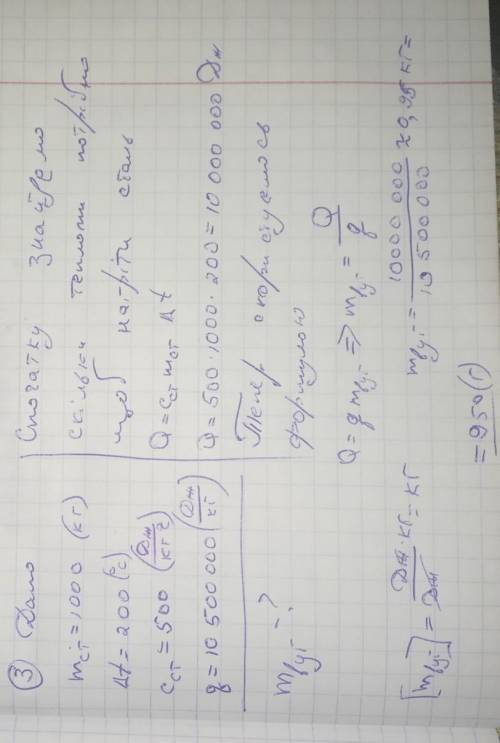 ③ Дано
m ст = 1000 (кг)
Δt = 200 (°с)
c ст = 500 (Дж/кг °с)
q = 10 500 000 (Дж/кг)
m вуг - ?
Спочатку знайдемо
скільки теплоти потрібно
щоб нагріти сталь
Q = c ст m ст Δt
Q = 500 · 1000 · 200 = 10 000 000 Дж
Тепер скористуємось
формулою
Q = q m вуг => m вуг = Q/q
[m вуг] = Дж · кг/Дж = кг
m вуг = 10000 000/10 500 000 ≈ 0,95 кг =
= 950 (г)